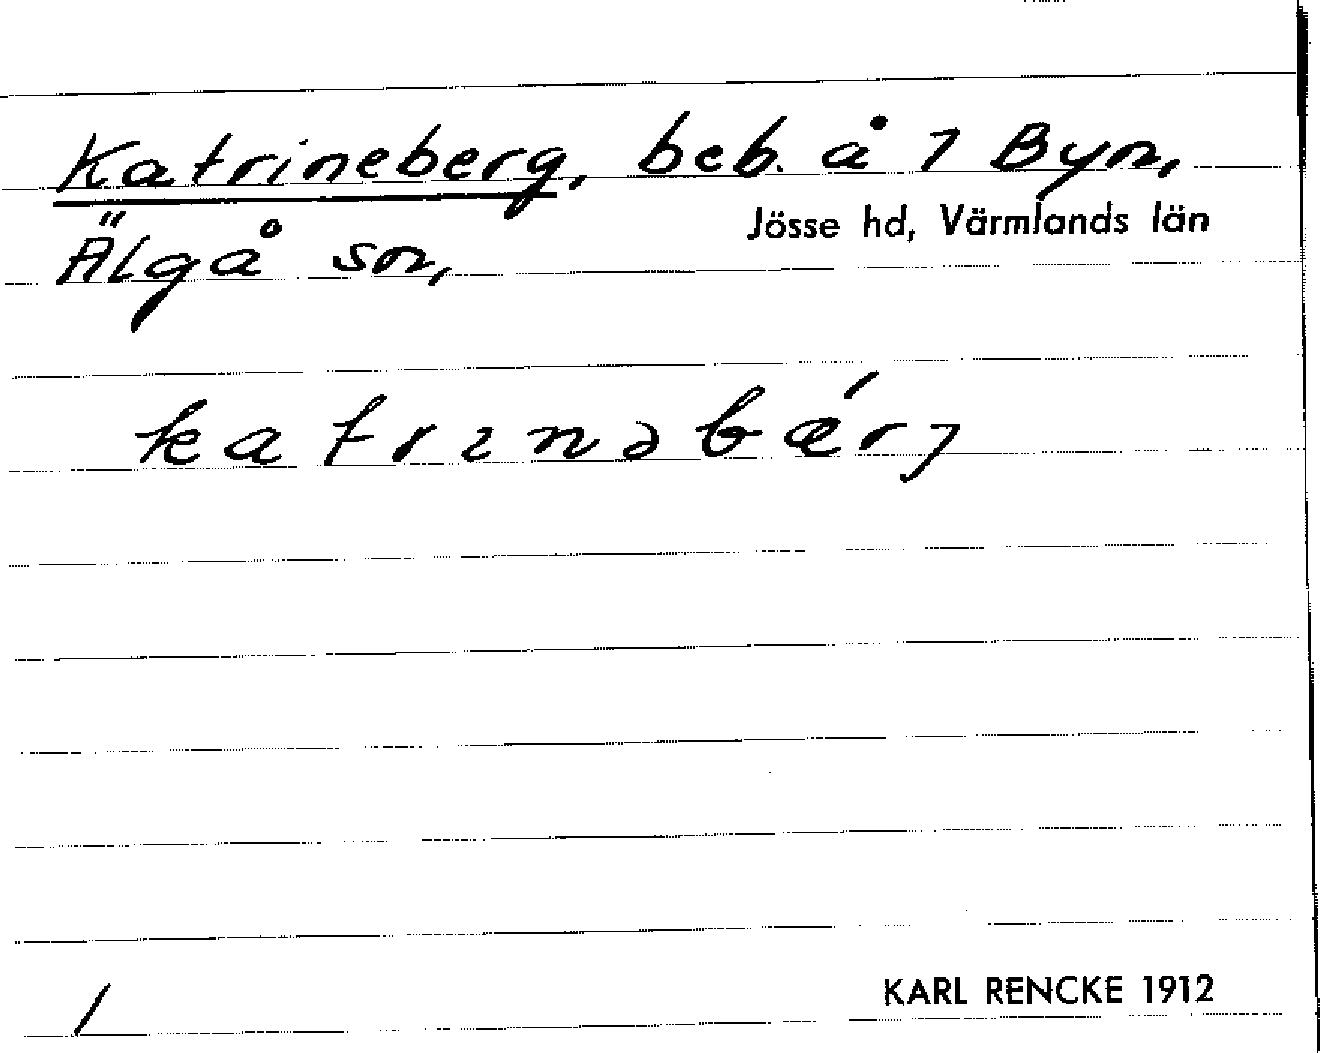 Katrineberg, beb. å 7 Byn,
Jösse hd, Värmlands län
Älgå sn,
katrinəbǽrj
/
KARL RENCKE 1912